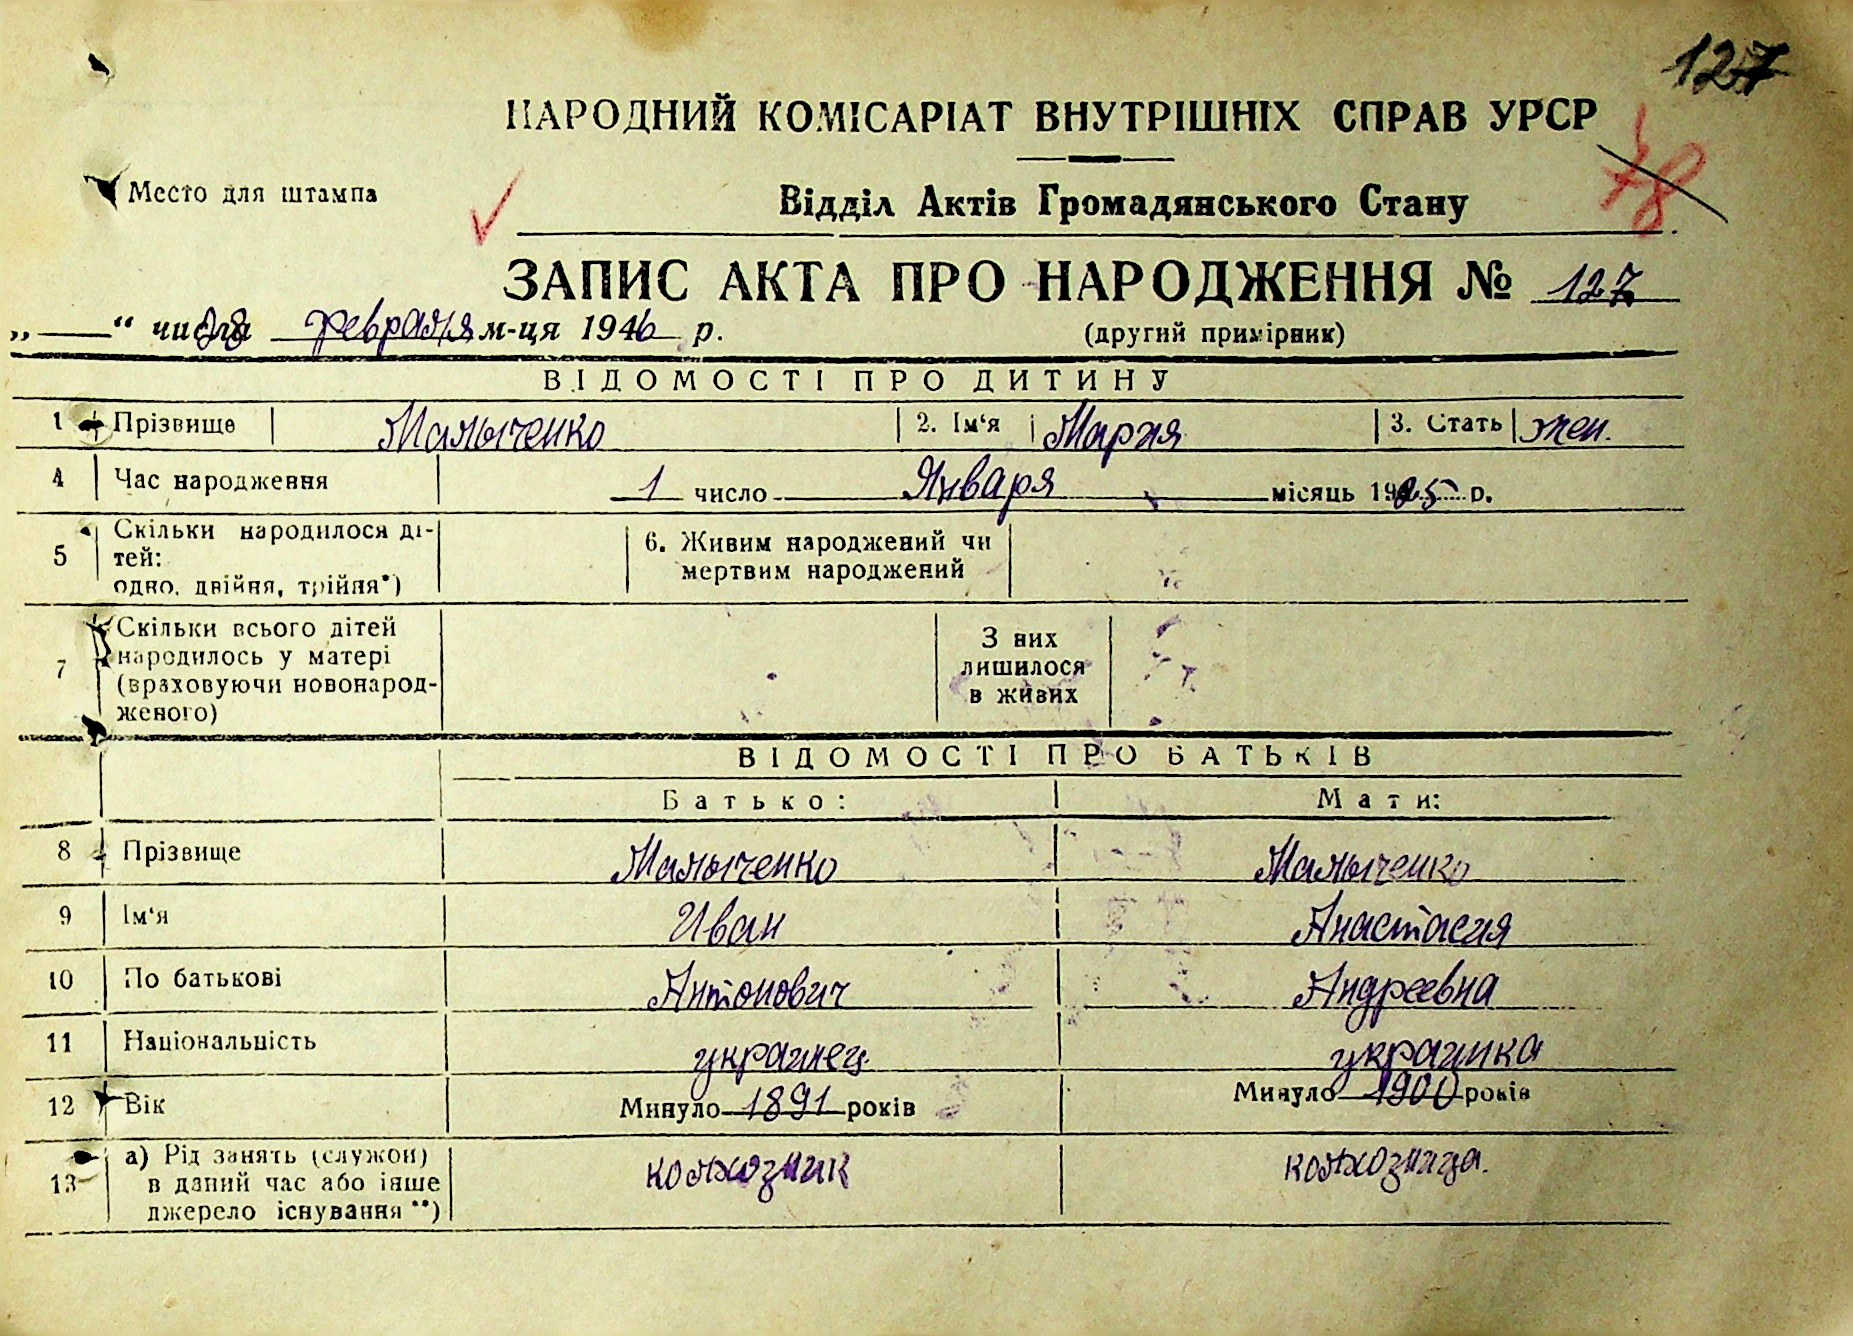 127
НАРОДНИЙ КОМІСАРІАТ ВНУТРІШНІХ СПРАВ УРСР
78
Место для штампа
Відділ Актів Громадянського Стану
ЗАПИС АКТА ПРО НАРОДЖЕННЯ № 127
„ “ числа 28 февраля м-ця 1946 р.
(другий примірник)
ВІДОМОСТІ ПРО ДИТИНУ
1 Прізвище Малыченко 2. Ім‘я Мария 3. Стать жен.
4 Час народження 1 число Января місяць 1925 р.
5 Скільки народилося ді-
тей:
одно, двійня, трійня*)
6. Живим народжений чи
мертвим народжений
7 Скільки всього дітей
народилось у матері
(враховуючи новонарод-
женого)
З них
лишилося
в живих
ВІДОМОСТІ ПРО БАТЬКІВ
Батько: Мати:
8 Прізвище Малыченко Малыченко
9 Ім‘я Иван Анастасия
10 По батькові Антонович Андреевна
11 Національність украинец украинка
12 Вік Минуло 1891 років Минуло 1900 років
13 а) Рід занять (служби)
в даний час або інше
джерело існування **)
колхозник колхозница.